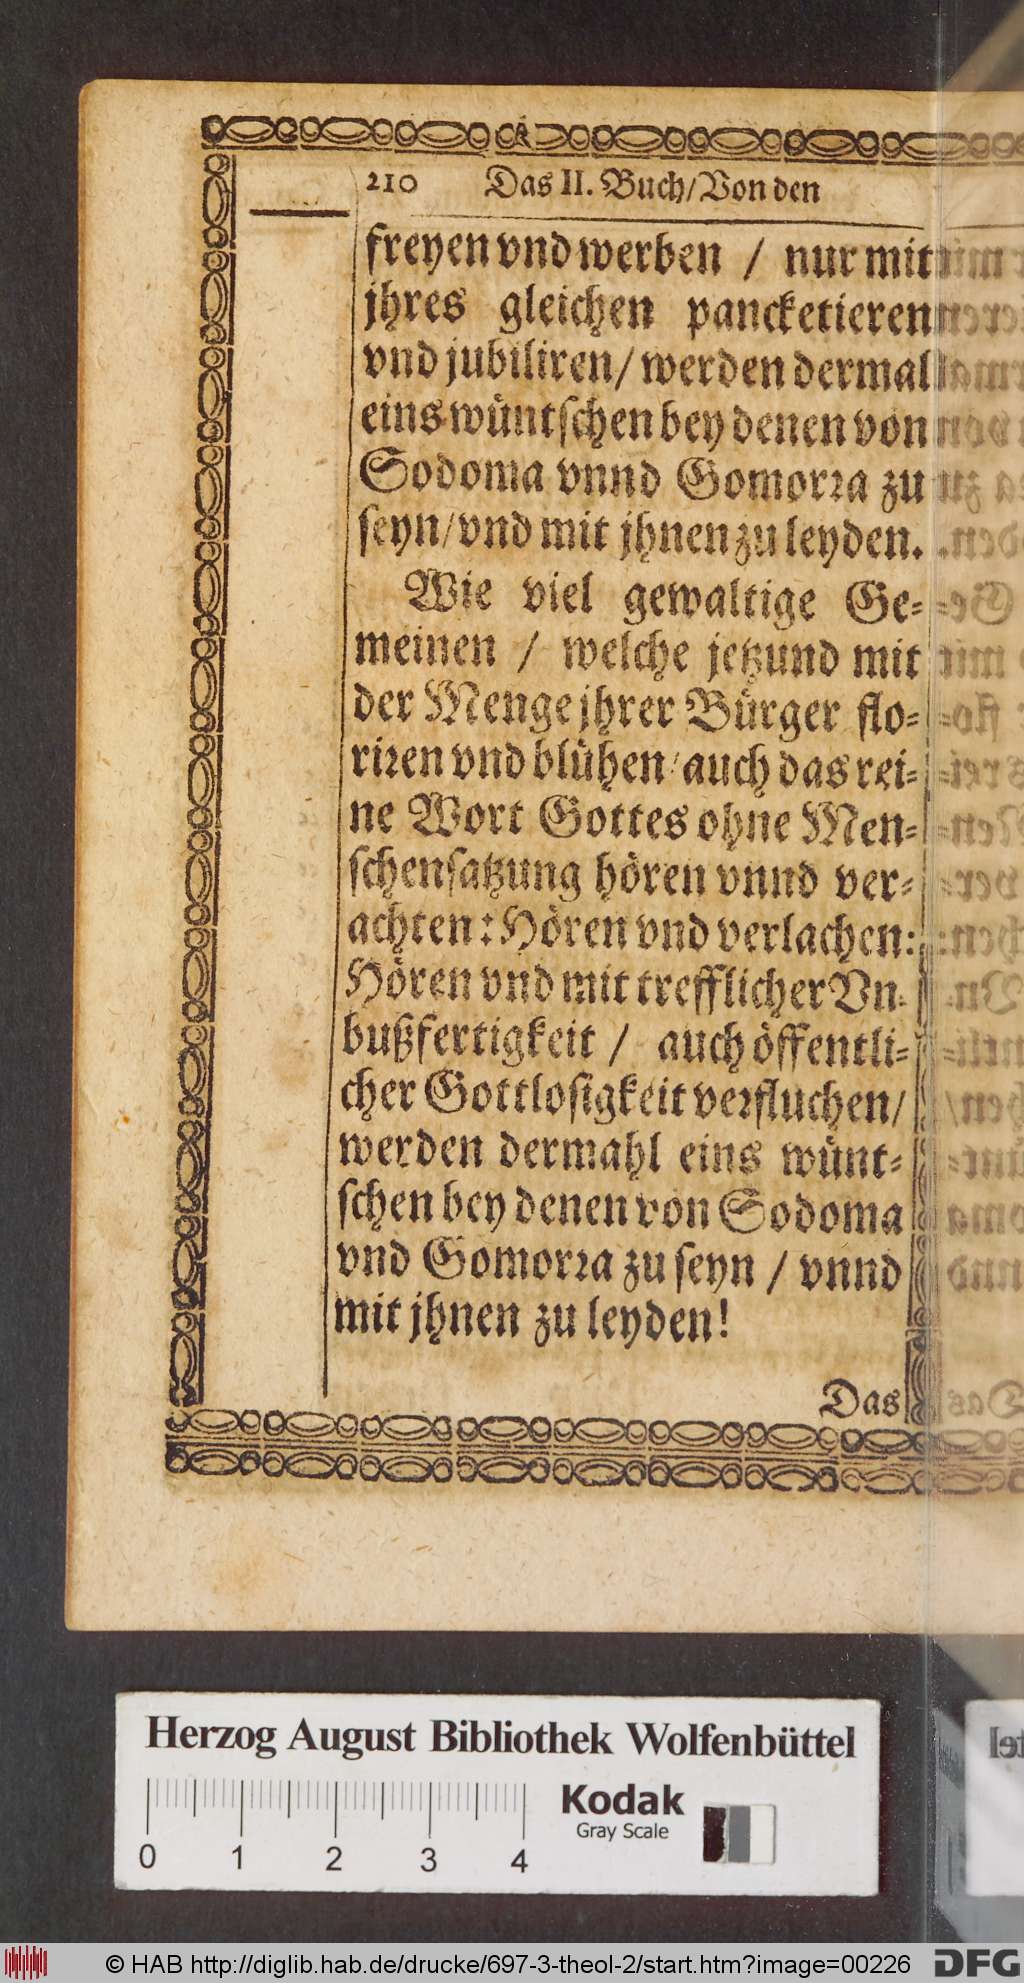 210 Das II. Buch/Von den
freyen vnd werben / nur mit
jhres gleichen pancketieren
vnd jubiliren/ werden dermal
eins wüntschen bey denen von
Sodoma vnnd Gomorra zu
seyn/vnd mit jhnen zu leyden.
Wie viel gewaltige Ge-
meinen / welche jetzund mit
der Menge jhrer Bürger flo-
riren vnd blühen/ auch das rei-
ne Wort Gottes ohne Men-
schensatzung hören vnnd ver-
achten: Hören vnd verlachen:
Hören vnd mit trefflicher Vn-
bußfertigkeit / auch öffentli-
cher Gottlosigkeit verfluchen/
werden dermahl eins wünt-
schen bey denen von Sodoma
vnd Gomorra zu seyn / vnnd
mit jhnen zu leyden!
Das
Herzog August Bibliothek Wolfenbüttel
Kodak
Gray Scale
0 1 2 3 4
© HAB http://diglib.hab.de/drucke/697-3-theol-2/start.htm?image=00226
DFG